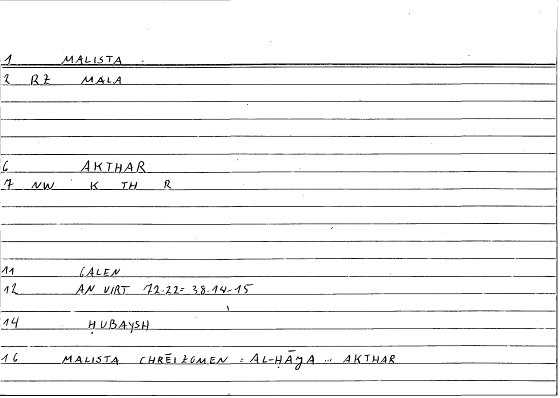 1 MALISTA
2 RZ MALA
6 AKTHAR
7 NW K TH R
11 GALEN
12 AN VIRT 72.22= 38.14-15
14 ḤUBAYSH
16 MALISTA CHRĒIZOMEN = AL-ḤĀJA ... AKTHAR